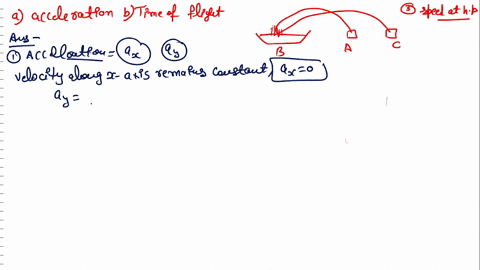 a) acceleration b) Time of flight
③ speed at h.p
B A C
Ans -
① Acceleration = ax ay
velocity along x-axis remains constant, ax = 0
ay =